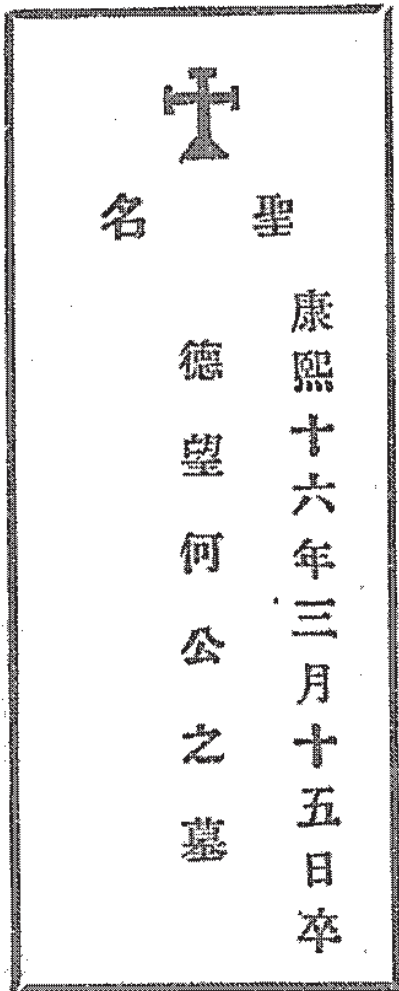 聖名
康熙十六年三月十五日卒
德望何公之墓